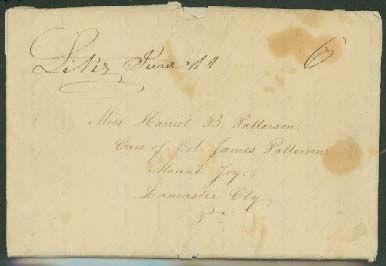 Lititz June 11 6
Miss Harriet B. Patterson,
Care of Col. James Patterson,
Mount Joy,
Lancaster Cty,
Pa